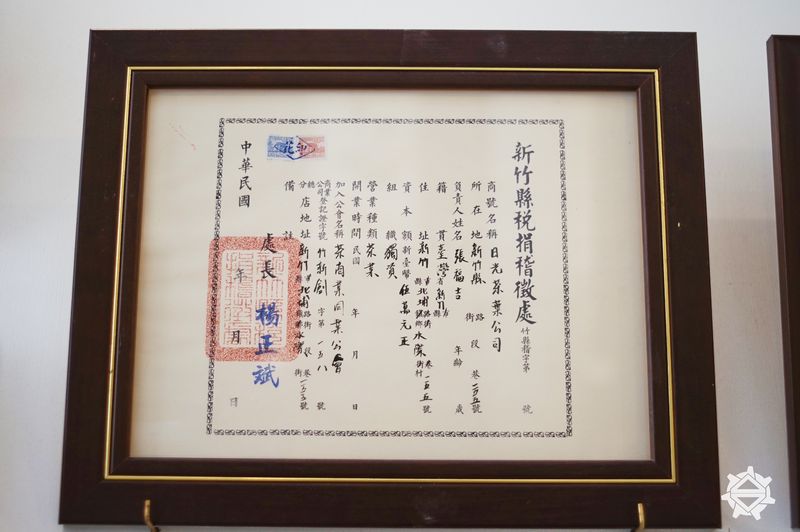 新竹縣稅捐稽徵處 竹縣稽字第 號
商號名稱 日光茶葉公司
所在地 新竹縣 街路 段 巷 一五五 號
負責人姓名 張福吉 年齡 歲
籍貫 臺灣省新竹縣
住址 新竹縣 北埔鄉 水磜村 一五五號
資本額 新臺幣 伍萬元正
組織 獨資
營業種類 茶業
開業時間 民國 年 月 日
加入公會名稱 茶商業同業公會
商業公司登記證字號 竹新創字第一五八號
總分店地址 新竹縣北埔 路街 段 巷 號
備註
中華民國 年 月 日
處長 楊正斌
印花